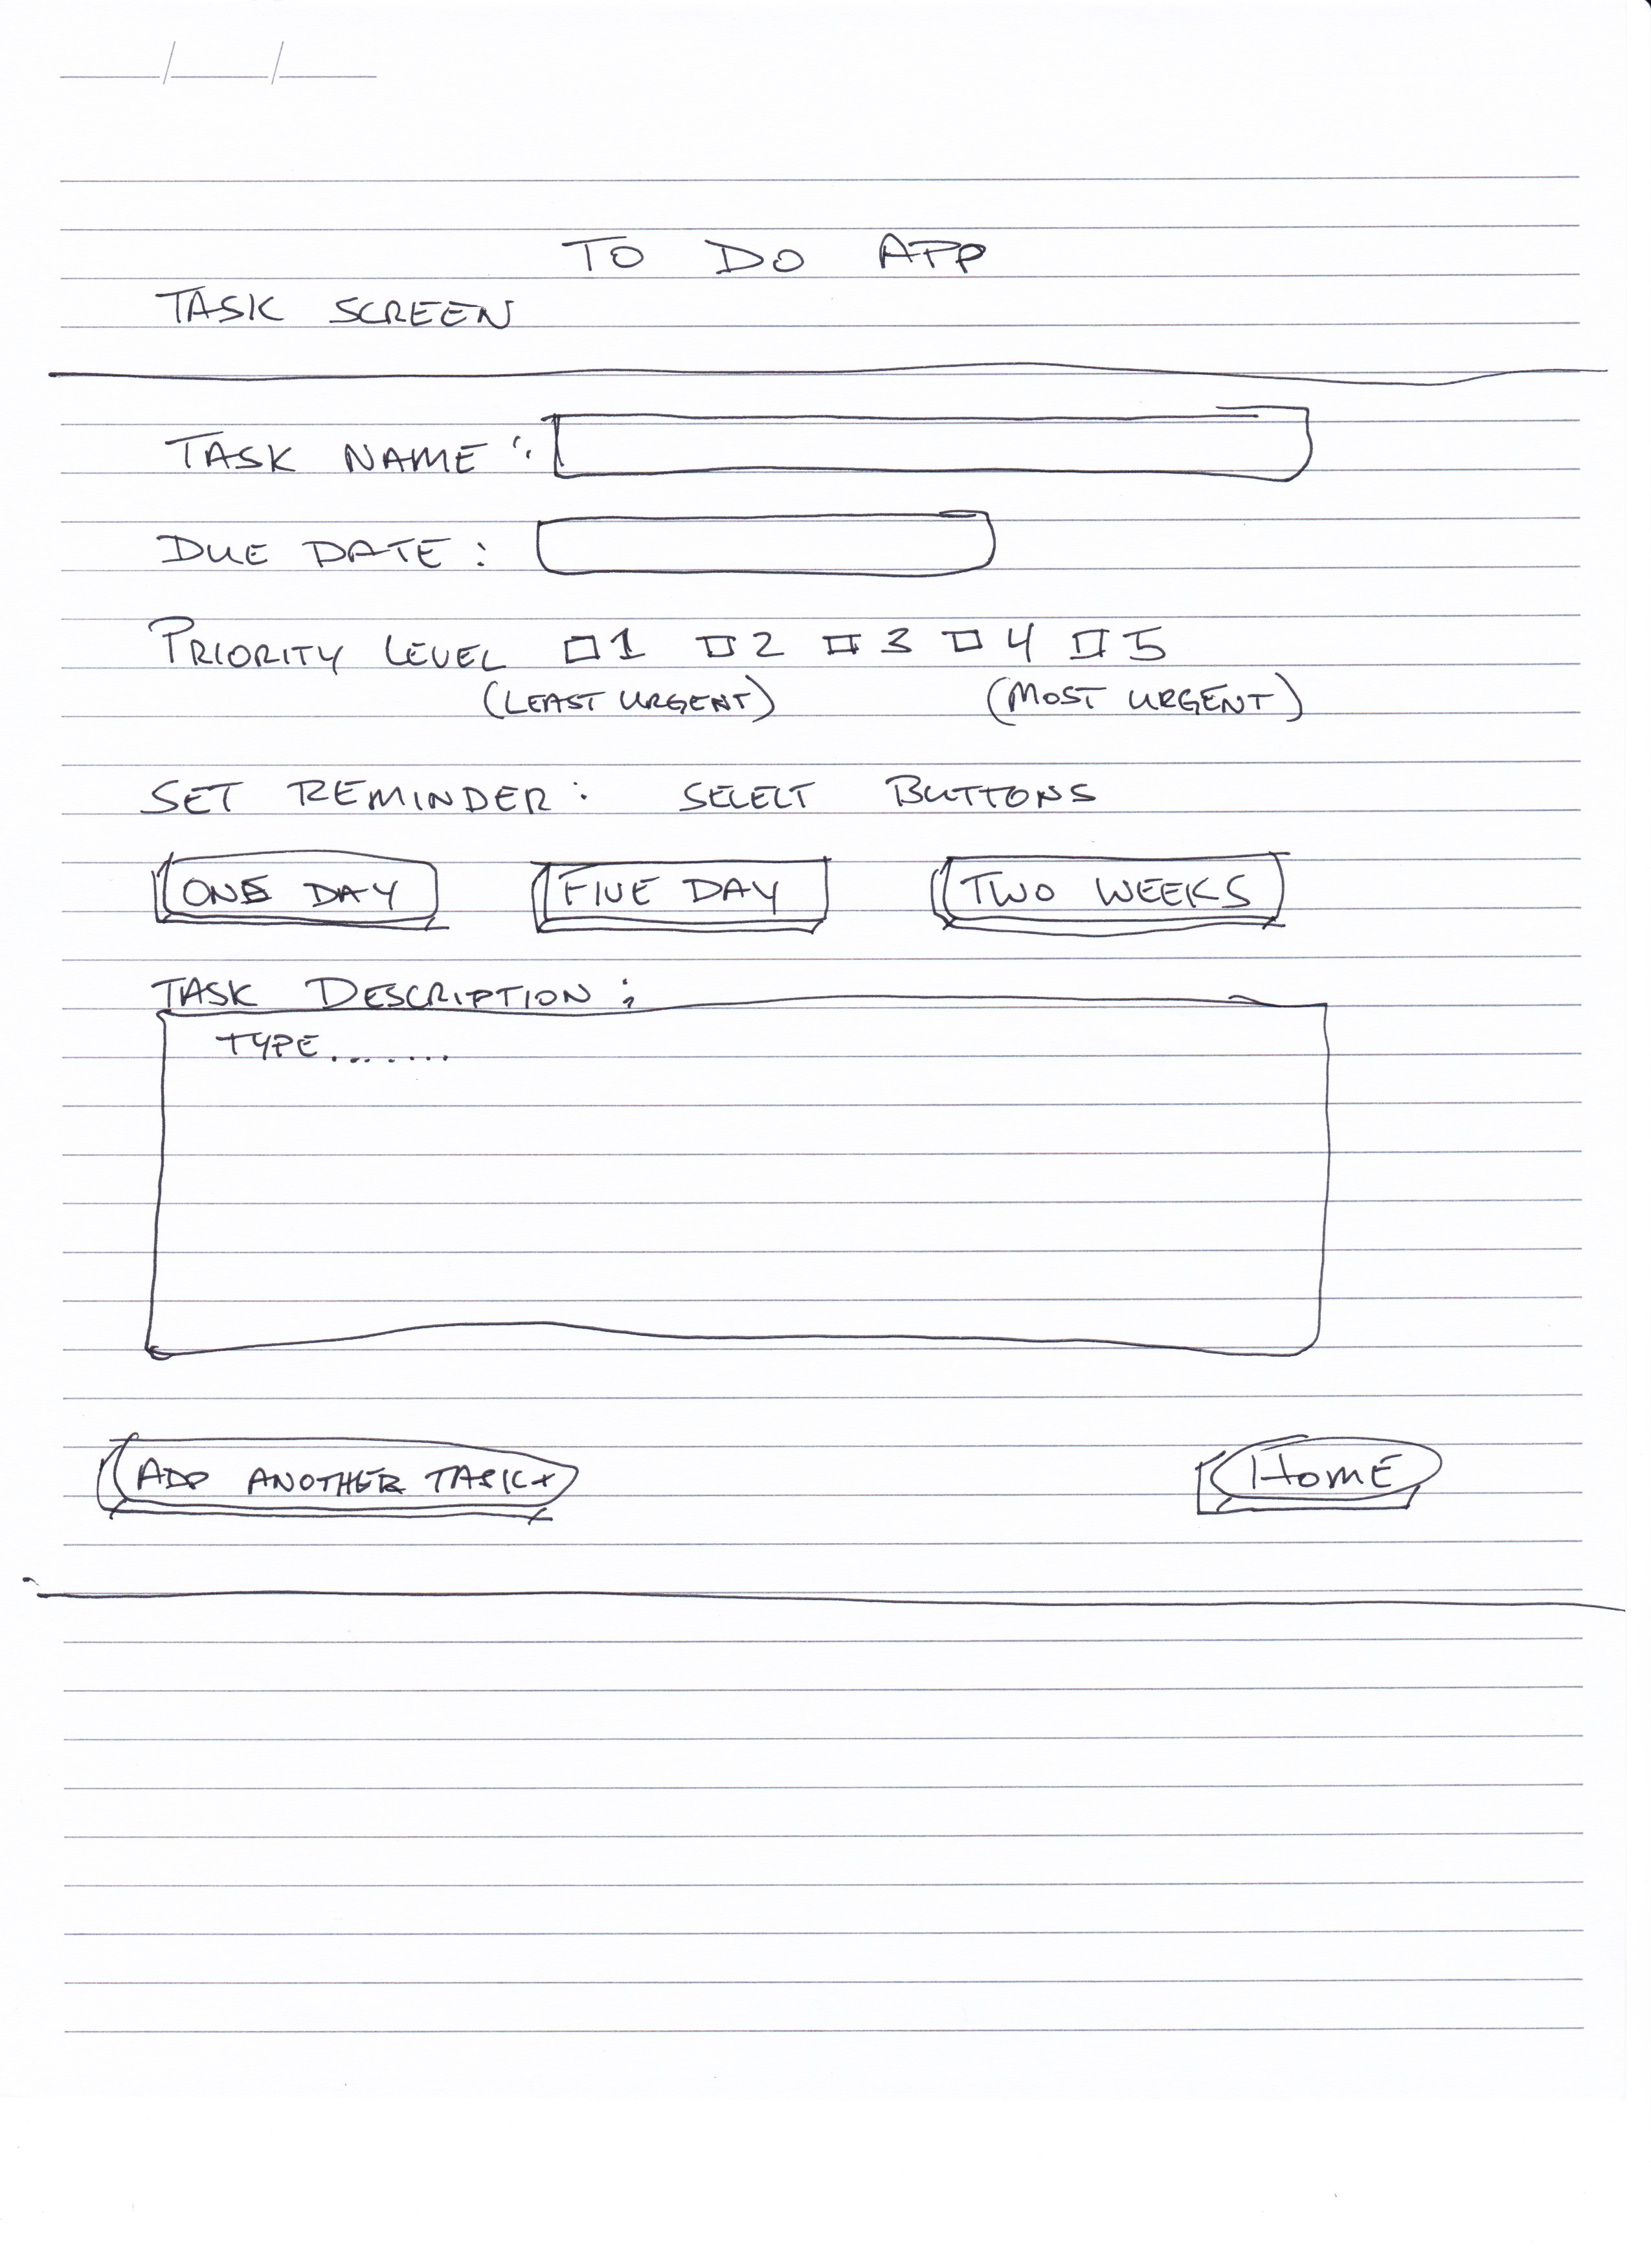 TO DO APP
TASK SCREEN
TASK NAME :
DUE DATE :
PRIORITY LEVEL 1 2 3 4 5
(LEAST URGENT) (MOST URGENT)
SET REMINDER: SELECT BUTTONS
ONE DAY FIVE DAY TWO WEEKS
TASK DESCRIPTION :
TYPE.......
ADD ANOTHER TASK+ HOME